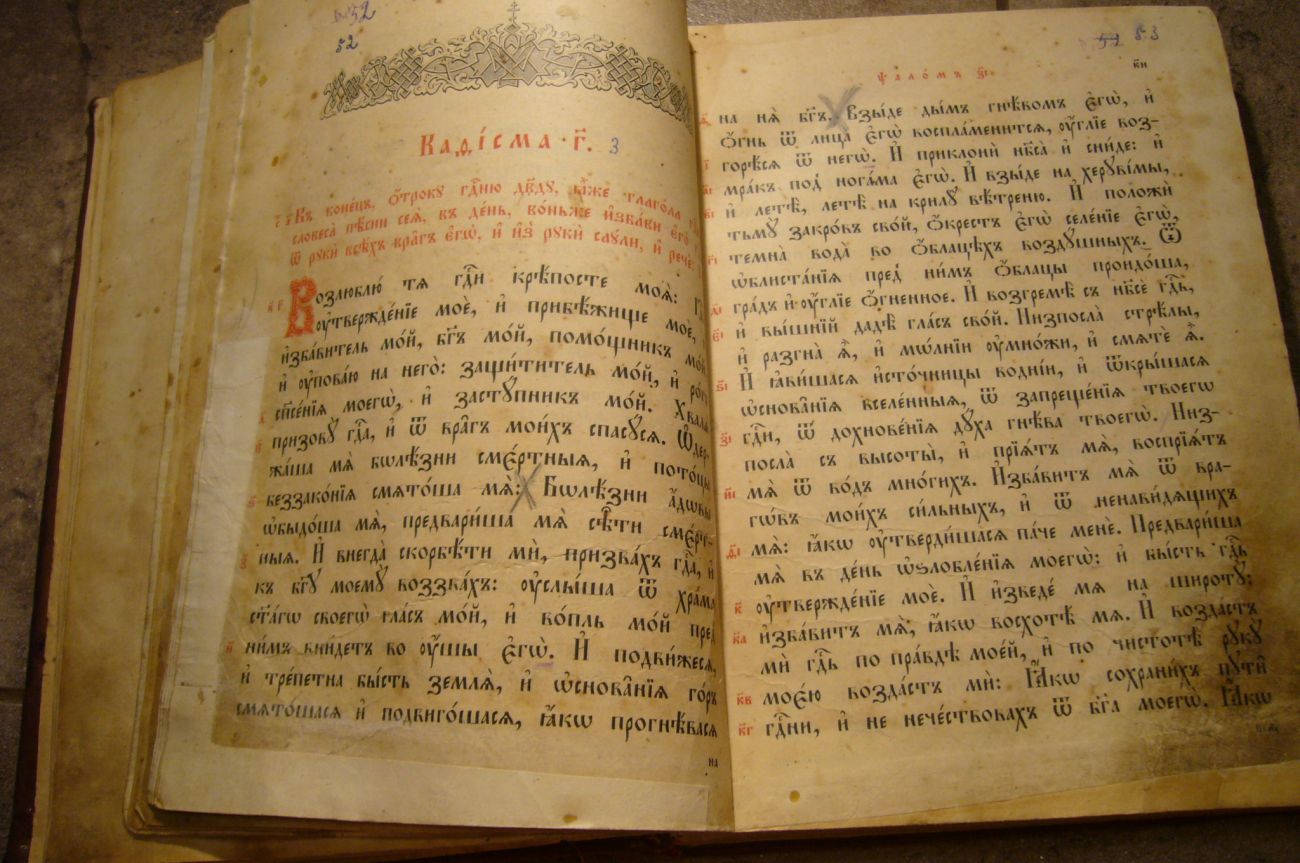 52
Каѳі́сма · г҃. 3
Въ коне́цъ, ѻ҆́троку гдⷭ҇ню дв҃ду, ꙗ҆̀же глаго́ла
словеса̀ пѣ́сни сеѧ̀, въ де́нь, во́ньже и҆зба́ви є҆го̀
ѿ рꙋкѝ всѣ́хъ вра̑гъ є҆гѡ̀, и҆ и҆з̾ рꙋкѝ сау́ли, и҆ речѐ:
Возлюблю́ тѧ гдⷭ҇и крѣ́посте моѧ̀:
ᲂу҆твержде́нїе моѐ, и҆ прибѣ́жище моѐ,
и҆зба́витель мо́й, бг҃ъ мо́й, помо́щникъ мо́й
и҆ ᲂу҆пова́ю на него̀: защи́титель мо́й, и҆ ро́гъ
сп҃се́нїѧ моегѡ̀, и҆ застꙋ́пникъ мо́й. Хвалѧ̀
призовꙋ̀ гдⷭ҇а, и҆ ѿ вра̑гъ мои́хъ спасꙋ́сѧ. Ѡ҆дер-
жа́ша мѧ̀ бѡлѣ́зни смє́ртныѧ, и҆ пото́цы
беззако́нїѧ смѧто́ша мѧ̀: Бѡлѣ́зни а҆́дѡвы
ѡ҆быдо́ша мѧ̀, предвари́ша мѧ̀ сѣ̑ти смє́рт-
ныѧ. И҆ внегда̀ скорбѣ́ти мѝ, призва́хъ гдⷭ҇а, и҆
къ бг҃ꙋ моемꙋ̀ воззва́хъ: ᲂу҆слы́ша ѿ хра́ма
ст҃а́гѡ своегѡ̀ гла́съ мо́й, и҆ во́пль мо́й пред̾
ни́мъ вни́детъ во ᲂу҆́шы є҆гѡ̀. И҆ подви́жесѧ,
и҆ тре́петна бы́сть землѧ̀, и҆ ѡ҆снова̑нїѧ го́ръ
смѧто́шасѧ и҆ подвиго́шасѧ, ꙗ҆́кѡ прогнѣ́васѧ
на
53
Ѱало́мъ з҃і
к҃и
на нѧ̀ бг҃ъ. Взы́де ды́мъ гнѣ́вомъ є҆гѡ̀, и҆
ѻ҆́гнь ѿ лица̀ є҆гѡ̀ воспла́менитсѧ, ᲂу҆́глїе воз-
горѣ́сѧ ѿ негѡ̀. И҆ приклонѝ нб҃са̀ и҆ сни́де: и҆
мра́къ под̾ нога́ма є҆гѡ̀. И҆ взы́де на херꙋві́мы,
и҆ летѣ̀, летѣ̀ на крилꙋ̀ вѣ́треню. И҆ положѝ
тьмꙋ̀ закро́въ сво́й, ѻ҆́крестъ є҆гѡ̀ селе́нїе є҆гѡ̀,
темна̀ вода̀ во ѻ҆́блацѣхъ воздꙋ́шныхъ. Ѿ
ѡ҆блиста́нїѧ пред̾ ни́мъ ѻ҆́блацы проидо́ша,
гра́дъ и҆ ᲂу҆́глїе ѻ҆́гненное. И҆ возгремѣ̀ съ нб҃сѐ гдⷭ҇ь,
и҆ вы́шнїй дадѐ гла́съ сво́й. Низпосла̀ стрѣ́лы,
и҆ разгна̀ ѧ҆̀, и҆ мѡ́лнїи ᲂу҆мно́жи, и҆ смѧтѐ ѧ҆̀.
И҆ ꙗ҆ви́шасѧ и҆сто́чницы водні́и, и҆ ѿкры́шасѧ
ѡ҆снова̑нїѧ вселе́нныѧ, ѿ запреще́нїѧ твоегѡ̀
гдⷭ҇и, ѿ дохнове́нїѧ дꙋ́ха гнѣ́ва твоегѡ̀. Низ-
посла̀ съ высоты̀, и҆ прїѧ́тъ мѧ̀, воспрїѧ́тъ
мѧ̀ ѿ во́дъ мно́гихъ. И҆зба́витъ мѧ̀ ѿ вра-
гѡ́въ мои́хъ си́льныхъ, и҆ ѿ ненави́дѧщихъ
мѧ̀: ꙗ҆́кѡ ᲂу҆тверди́шасѧ па́че менє̀. Предвари́ша
мѧ̀ въ де́нь ѡ҆ѕлобле́нїѧ моегѡ̀: и҆ бы́сть гдⷭ҇ь
ᲂу҆твержде́нїе моѐ. И҆ и҆зведе́ мѧ на широтꙋ̀:
и҆зба́витъ мѧ̀, ꙗ҆́кѡ восхотѣ́ мѧ. И҆ возда́стъ
мѝ гдⷭ҇ь по пра́вдѣ мое́й, и҆ по чистотѣ̀ рꙋкꙋ̀
моє́ю возда́стъ мѝ: Ꙗ҆́кѡ сохрани́хъ пꙋти̑
гдⷭ҇ни, и҆ не нече́ствовахъ ѿ бг҃а моегѡ̀. Ꙗ҆́кѡ